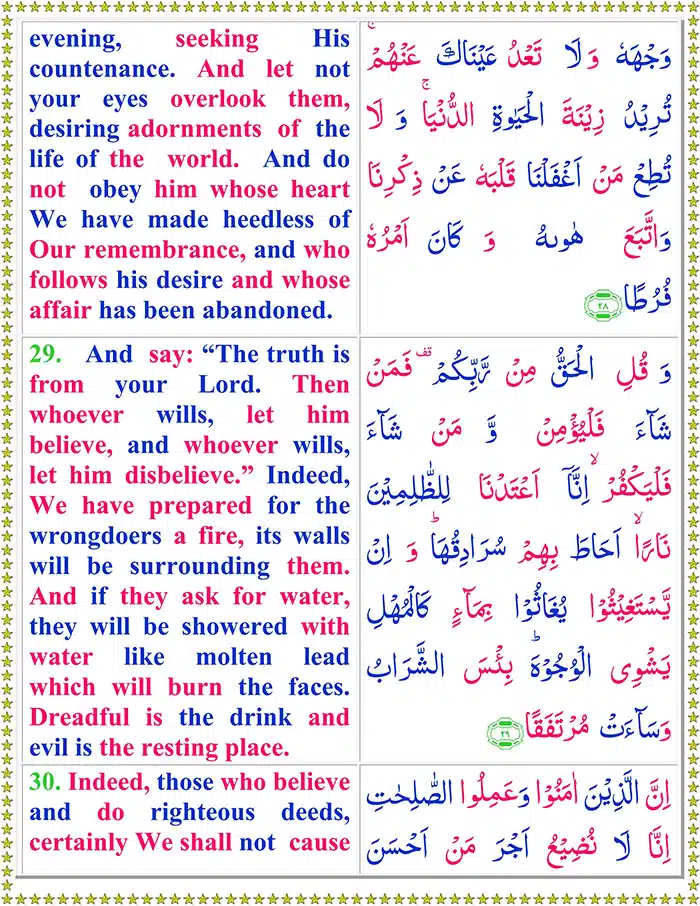 evening, seeking His
countenance. And let not
your eyes overlook them,
desiring adornments of the
life of the world. And do
not obey him whose heart
We have made heedless of
Our remembrance, and who
follows his desire and whose
affair has been abandoned.
وَجْهَهٗ وَلَا تَعْدُ عَيْنٰكَ عَنْهُمْ ۚ
تُرِيْدُ زِيْنَةَ الْحَيٰوةِ الدُّنْيَا ۚ وَ لَا
تُطِعْ مَنْ اَغْفَلْنَا قَلْبَهٗ عَنْ ذِكْرِنَا
وَاتَّبَعَ هَوٰىهُ وَ كَانَ اَمْرُهٗ
فُرُطًا ٢٨
29. And say: “The truth is
from your Lord. Then
whoever wills, let him
believe, and whoever wills,
let him disbelieve.” Indeed,
We have prepared for the
wrongdoers a fire, its walls
will be surrounding them.
And if they ask for water,
they will be showered with
water like molten lead
which will burn the faces.
Dreadful is the drink and
evil is the resting place.
وَ قُلِ الْحَقُّ مِنْ رَّبِّكُمْ ۫ فَمَنْ
شَآءَ فَلْيُؤْمِنْ وَّ مَنْ شَآءَ
فَلْيَكْفُرْ ۙ اِنَّآ اَعْتَدْنَا لِلظّٰلِمِيْنَ
نَارًا ۙ اَحَاطَ بِهِمْ سُرَادِقُهَا ؕ وَ اِنْ
يَّسْتَغِيْثُوْا يُغَاثُوْا بِمَآءٍ كَالْمُهْلِ
يَشْوِى الْوُجُوْهَ ؕ بِئْسَ الشَّرَابُ
وَسَآءَتْ مُرْتَفَقًا ٢٩
30. Indeed, those who believe
and do righteous deeds,
certainly We shall not cause
اِنَّ الَّذِيْنَ اٰمَنُوْا وَعَمِلُوا الصّٰلِحٰتِ
اِنَّا لَا نُضِيْعُ اَجْرَ مَنْ اَحْسَنَ